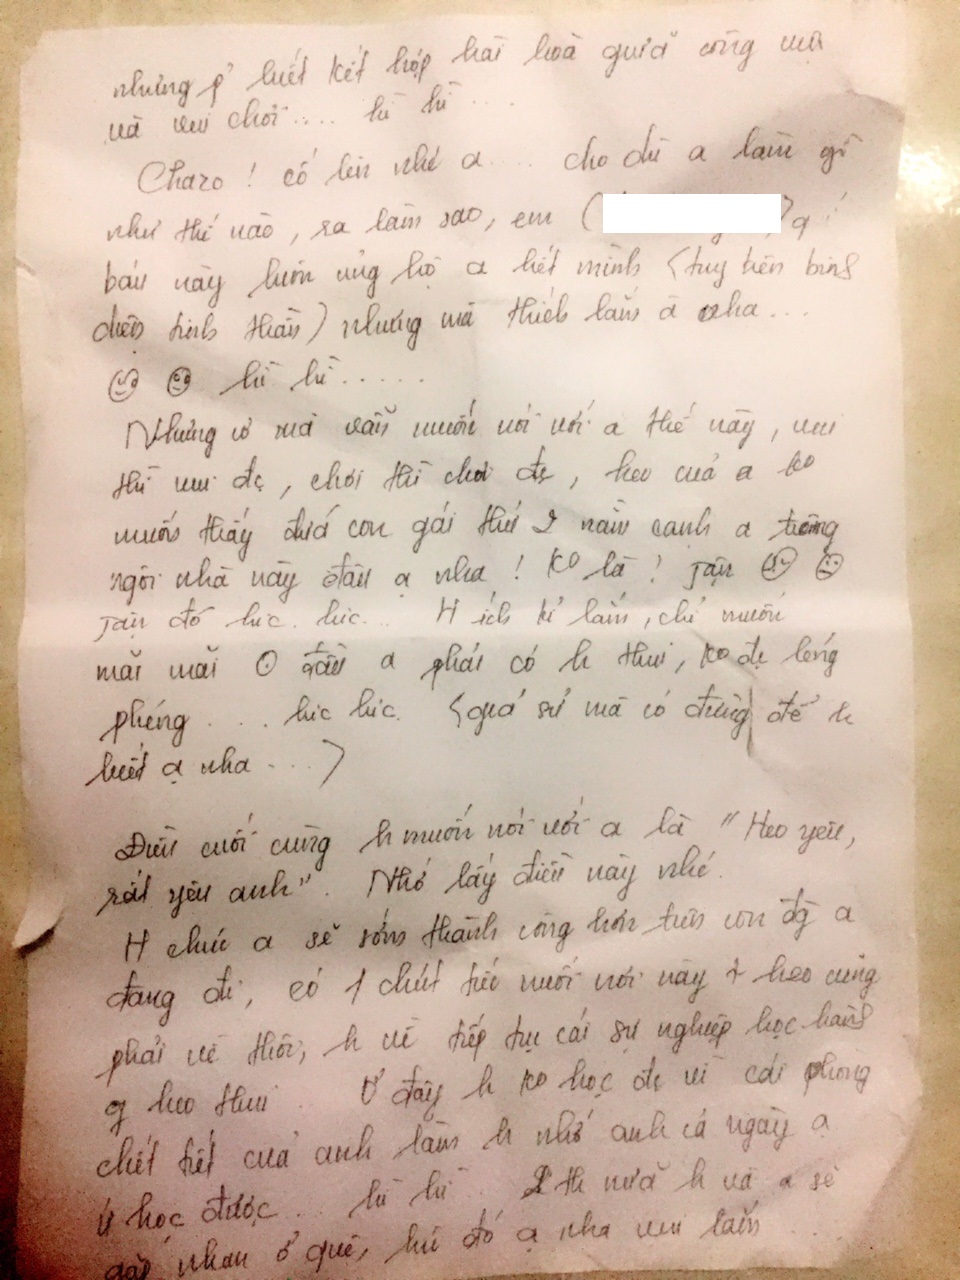 nhưng p' biết kết hợp hài hoà giữa công việc
và vui chơi.... hì hì ...
Charo ! cố lên nhé a.... cho dù a làm gì
như thế nào, ra làm sao, em (
báu này luôn ủng hộ a hết mình (tuy trên bình
diện tinh thần) nhưng mà thích lắm à nha...
hì hì.....
Nhưng ơ mà vẫn muốn nói với a thế này, vui
thì vui đc, chơi thì chơi đc, heo của a ko
muốn thấy đứa con gái thứ 2 nằm cạnh a trong
ngôi nhà này đâu ạ nha ! ko là ! giận
giận đó hic. hic... H ích kỉ lắm, chỉ muốn
mãi mãi đầu a phải có h thui, ko đc lóng
phóng .... hic hic. (quá sử mà có đừng để h
biết ạ nha ....)
Điều cuối cùng h muốn nói với a là "Heo yêu,
rất yêu anh". Nhớ lấy điều này nhé.
H chúc a sẽ sớm thành công hơn trên con đg a
đang đi, có 1 chút tiếc nuối nơi này + heo cũng
phải về thôi, h về tiếp tục cái sự nghiệp học hành
g heo thui. Ở đây h ko học đc vì cái phòng
chết tiệt của anh làm h nhớ anh cả ngày ạ
ứ học được... hì hì. 2 th nữa h và a sẽ
gặp nhau ở quê, khi đó ạ nha vui lắm ....